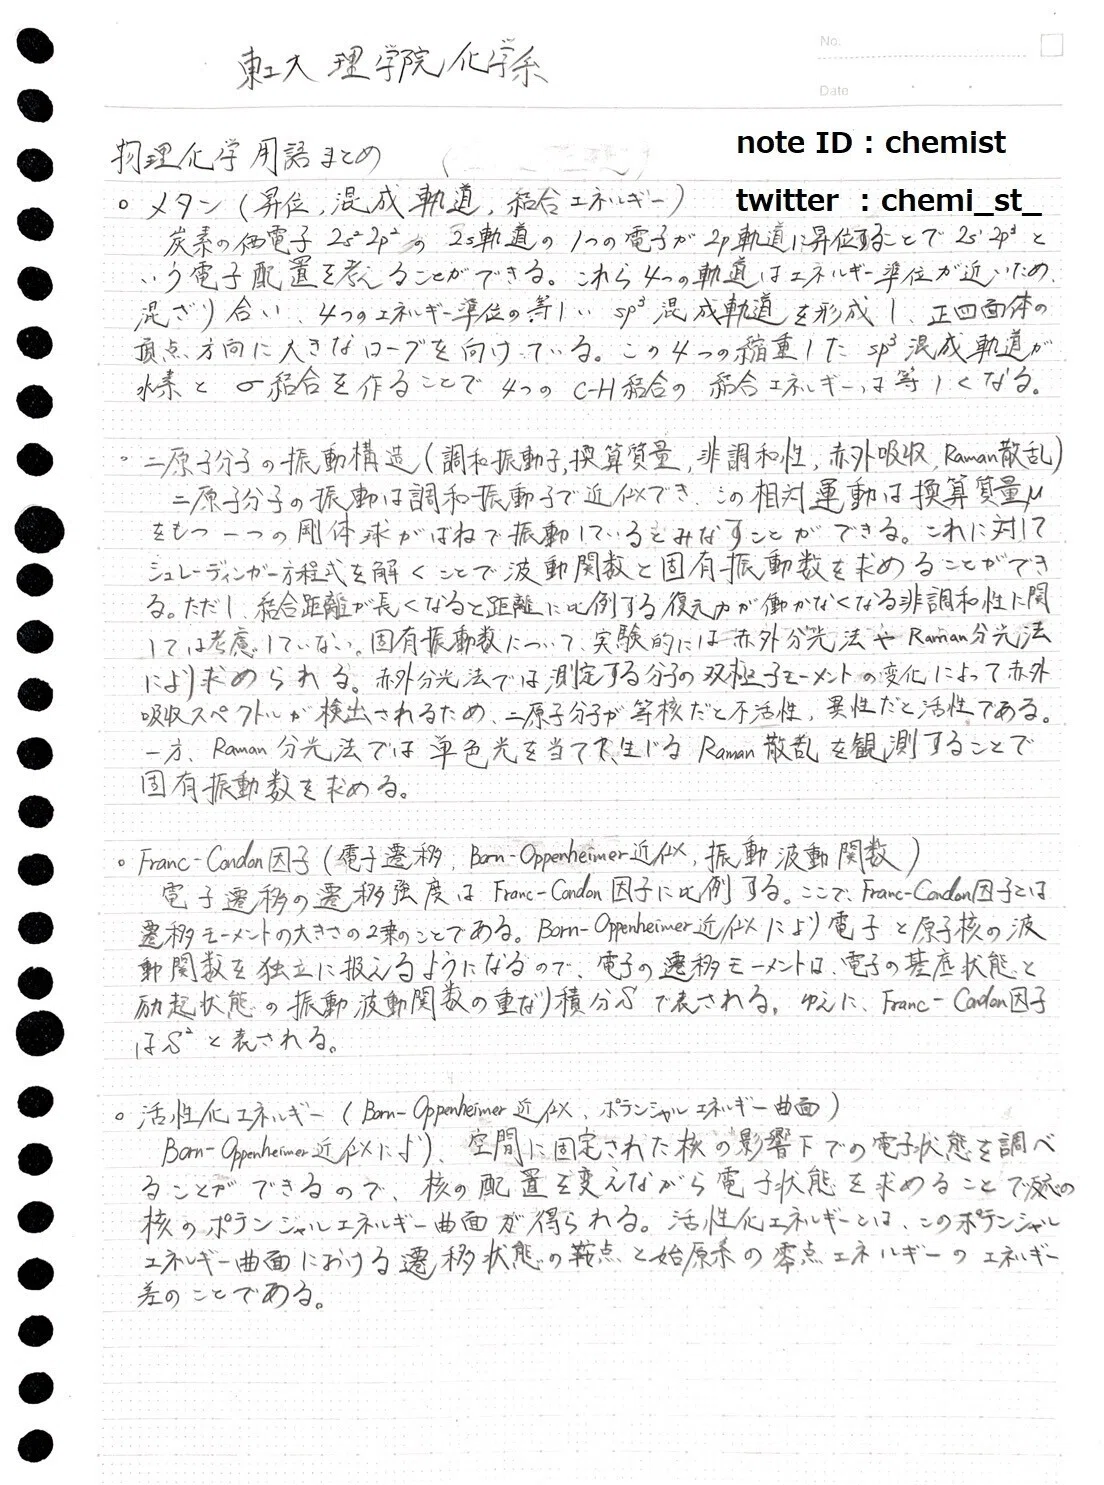 No.
東工大 理学院 化学系
Date
物理化学 用語まとめ
note ID : chemist
twitter : chemi_st_
。メタン (昇位, 混成軌道, 結合エネルギー)
炭素の価電子 2s²2p² の 2s軌道の1つの電子が2p軌道に昇位することで 2s¹2p³ と
いう電子配置を考えることができる。これら4つの軌道はエネルギー準位が近いため、
混ざり合い、4つのエネルギー準位の等しい sp³ 混成軌道を形成し、正四面体の
頂点方向に大きなローブを向けている。この4つの縮重した sp³ 混成軌道が
水素と σ結合を作ることで 4つの C-H結合の 結合エネルギーは等しくなる。
。二原子分子の振動構造 (調和振動子, 換算質量, 非調和性, 赤外吸収, Raman散乱)
二原子分子の振動は調和振動子で近似でき、この相対運動は換算質量μ
をもつ一つの剛体球がばねで振動しているとみなすことができる。これに対して
シュレーディンガー方程式を解くことで波動関数と固有振動数を求めることができ
る。ただし、結合距離が長くなると距離に比例する復元力が働かなくなる非調和性に関
しては考慮していない。固有振動数について、実験的には赤外分光法やRaman分光法
により求められる。赤外分光法では測定する分子の双極子モーメントの変化によって赤外
吸収スペクトルが検出されるため、二原子分子が等核だと不活性, 異性だと活性である。
一方、Raman分光法では単色光を当て、生じるRaman散乱を観測することで
固有振動数を求める。
。Franc-Condon因子 (電子遷移, Born-Oppenheimer近似, 振動波動関数)
電子遷移の遷移強度はFranc-Condon因子に比例する。ここで、Franc-Condon因子とは
遷移モーメントの大きさの2乗のことである。Born-Oppenheimer近似により電子と原子核の波
動関数を独立に扱えるようになるので、電子の遷移モーメントは、電子の基底状態と
励起状態の振動波動関数の重なり積分Sで表される。ゆえに、Franc-Condon因子
はS²と表される。
。活性化エネルギー (Born-Oppenheimer近似, ポテンシャルエネルギー曲面)
Born-Oppenheimer近似により、空間に固定された核の影響下での電子状態を調べ
ることができるので、核の配置を変えながら電子状態を求めることで反応の
核のポテンシャルエネルギー曲面が得られる。活性化エネルギーとは、このポテンシャル
エネルギー曲面における遷移状態の鞍点と始原系の零点エネルギーのエネルギー
差のことである。